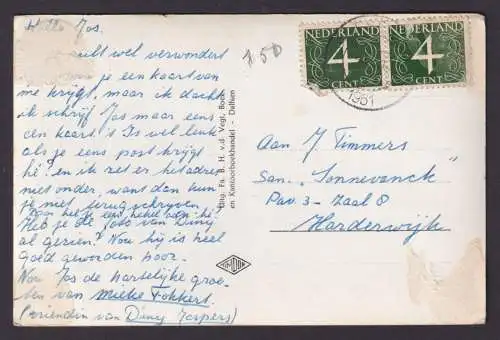 Hallo Jos.
zult wel verwonderd
je een kaart van
me krijgt, maar ik dacht
ik schrijf Jos maar eens
een kaart. 't Is wel leuk
als je eens post krijgt
hè? en ik zet er het adres
niet onder, want dan kun
je niet terugschrijven
Daar heb je een hekel aan hè?
Heb je de foto van Diny
al gezien? Nou hij is heel
goed geworden hoor.
Nou Jos de hartelijke groe-
ten van Mieke Fokkert.
(vriendin van Diny Jaspers)
Uitg. Fa. B. H. v.d. Vegt, Boek-
en Kantoorboekhandel - Dalfsen
150
NEDERLAND
4
CENT
NEDERLAND
4
CENT
1961
Aan J. Timmers
San. "Sonnevanck"
Pav. 3 - Zaal 8
Harderwijk